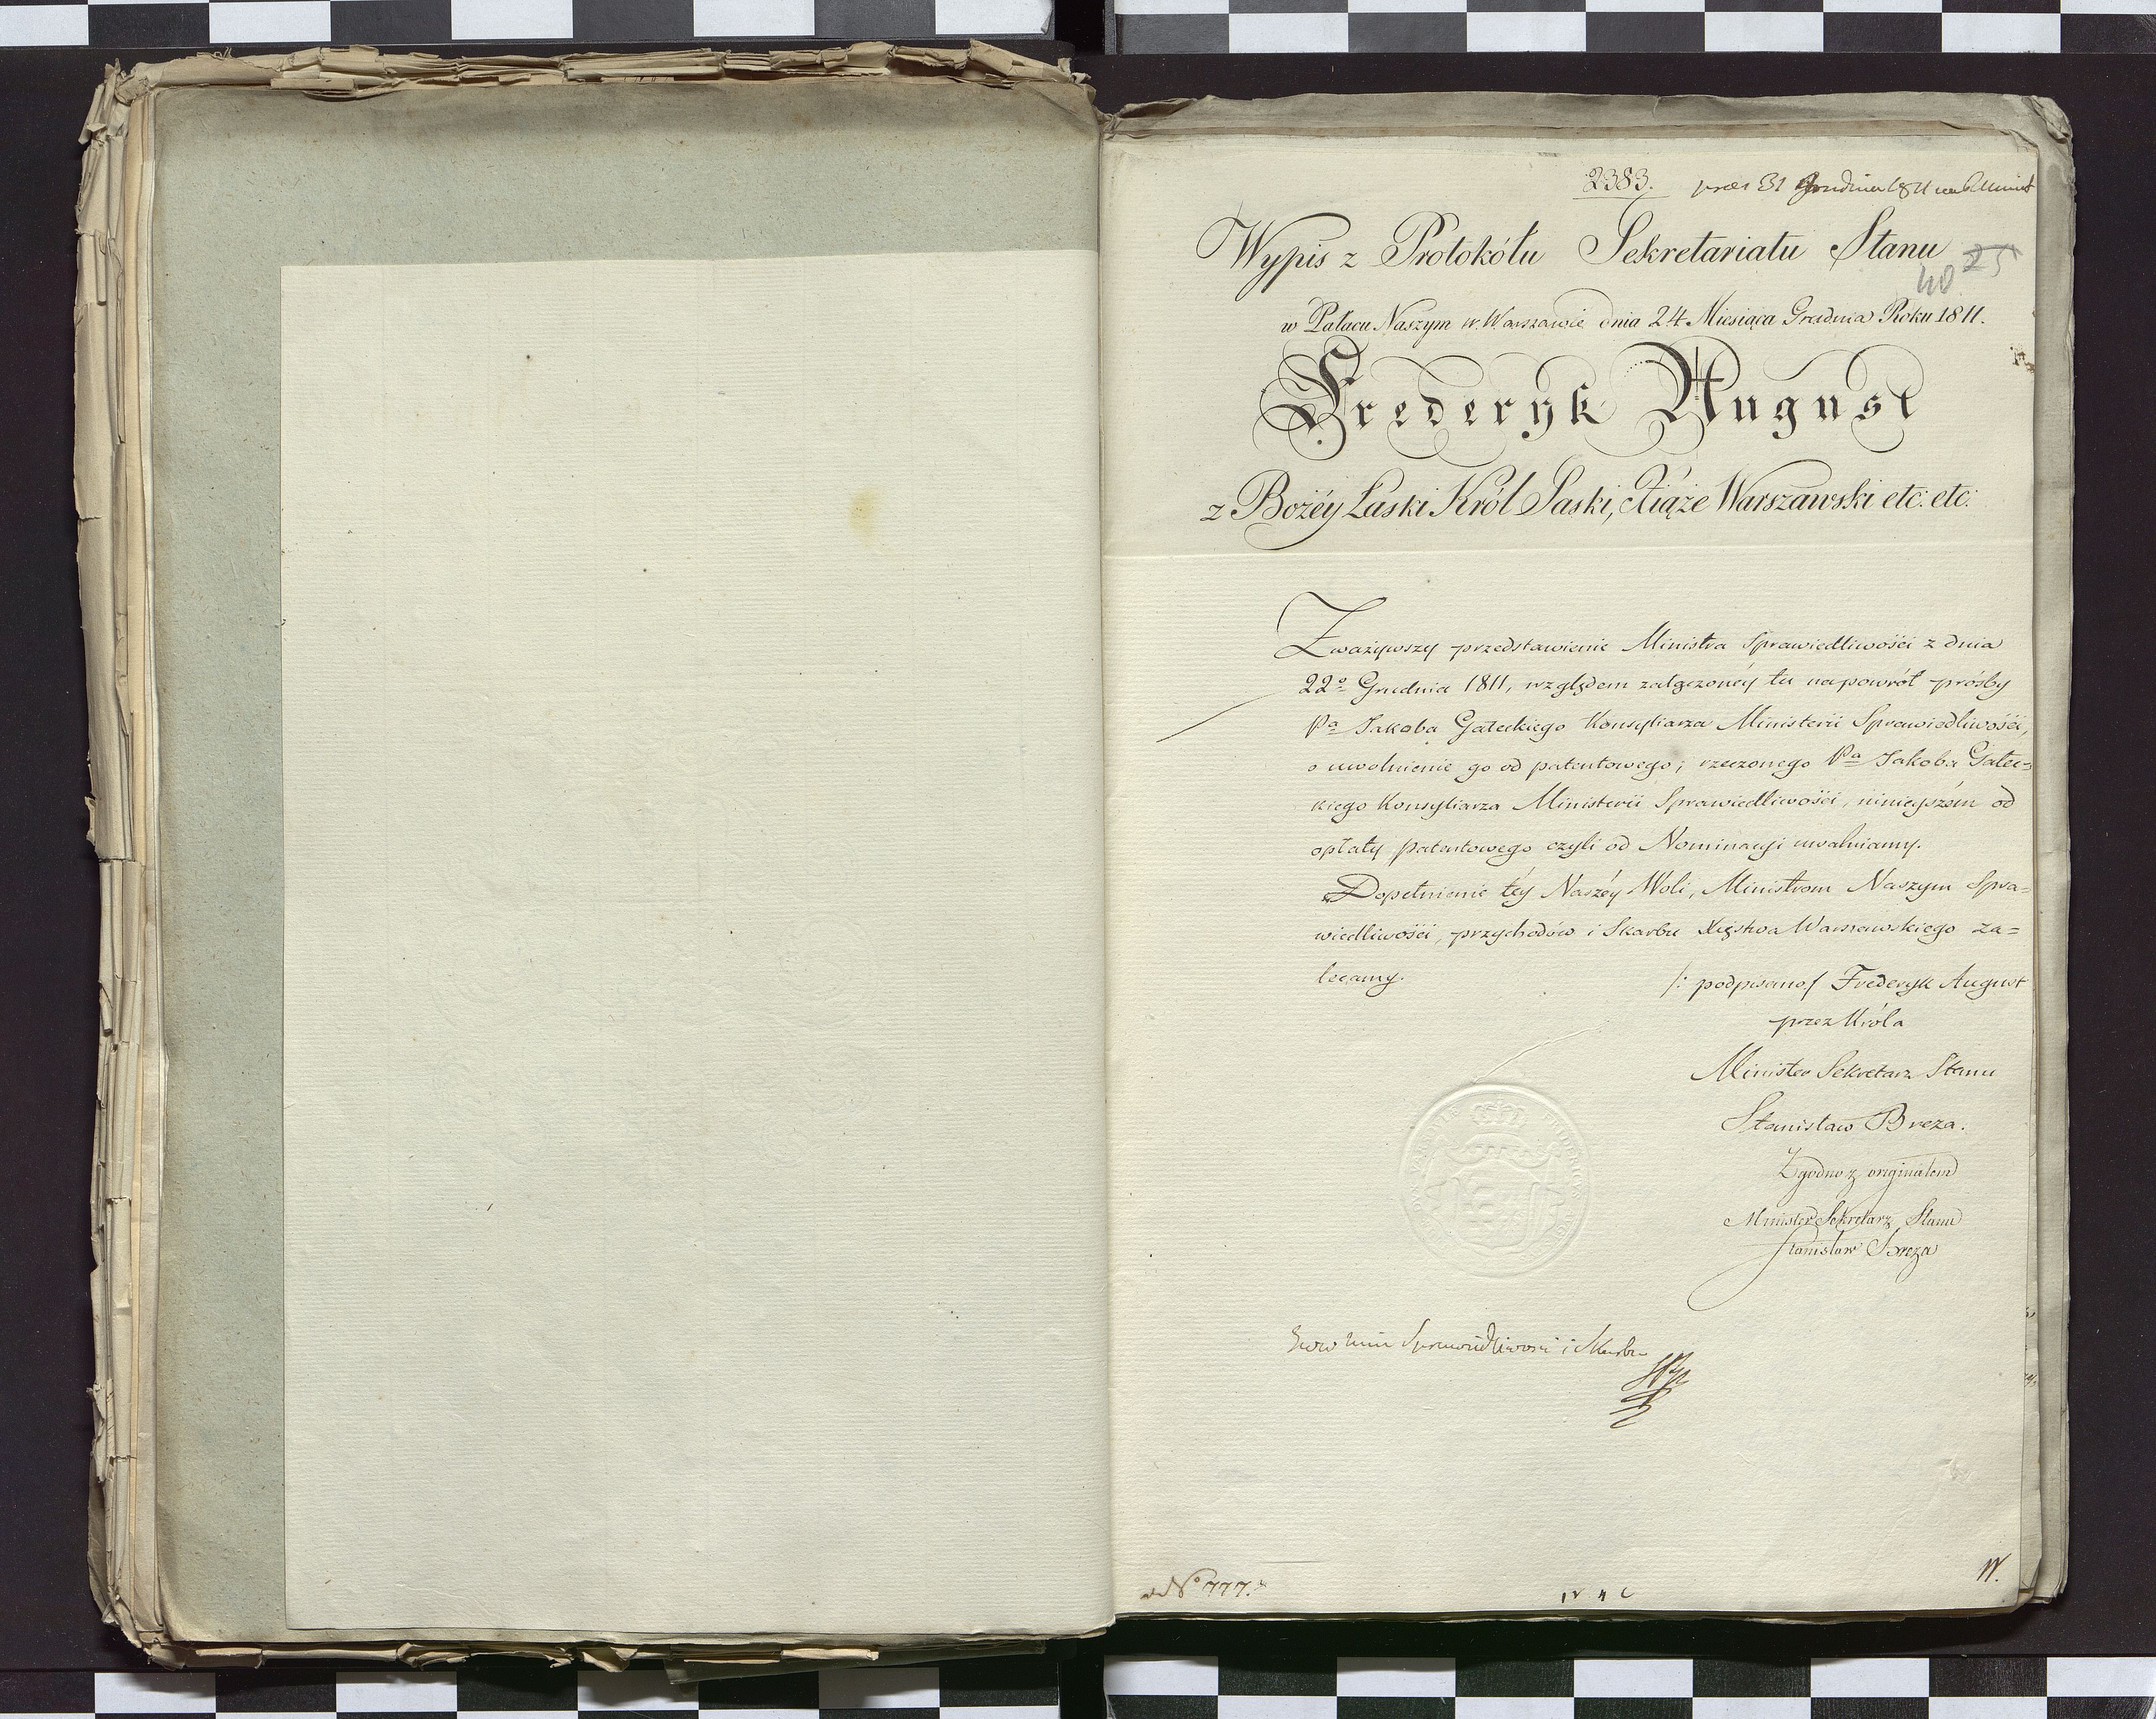 2383. prae: 31 Grudnia 1811
Wypis z Protokółu Sekretariatu Stanu
40 25
w Pałacu Naszym w Warszawie dnia 24 Miesiąca Grudnia Roku 1811.
Frederyk August
z Bożéy Łaski Król Saski, Xiąże Warszawski etc: etc:
Zważywszy przedstawienie Ministra Sprawiedliwości z dnia
22º Grudnia 1811, względem załączonéy tu napowrót prośby
Pa Jakoba Gałeckiego Konsyliarza Ministerii Sprawiedliwości,
o uwolnienie go od patentowego; rzeczonego Pa Jakoba Gałec=
kiego Konsyliarza Ministerii Sprawiedliwości, ninieyszém od
opłaty patentowego czyli od Nominacyi uwalniamy.
Dopełnienie téy Naszéy Woli, Ministrom Naszym Spra=
wiedliwości, przychodów i Skarbu Xięstwa Warszawskiego za=
lecamy.
/: podpisano / Frederyk August
przez Króla
Minister Sekretarz Stanu
Stanisław Breza.
Zgodno z originałem
Minister Sekretarz Stanu
Stanisław Breza
Min Sprawiedliwości i Skarbu
No 777.
W.